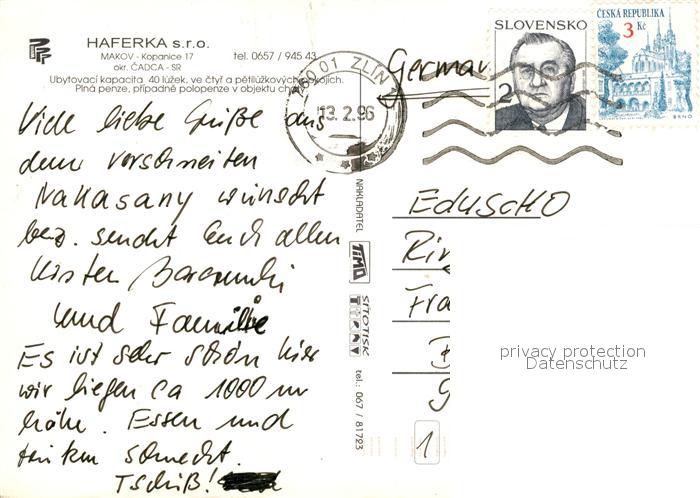 HAFERKA s.r.o.
MAKOV - Kopanice 17 tel. 0657 / 945 43
okr. ČADCA - SR
Ubytovací kapacita 40 lůžek, ve čtyř a pětilůžkových pokojích.
Plná penze, případně polopenze v objektu
Viele liebe Grüße aus
dem verschneiten
wünscht
bez. sendet Euch allen
Kirsten
und Familie
Es ist sehr schön hier
wir liegen ca 1000 m
höhe. Essen und
trinken schmeckt.
Tschüß!
01 ZLÍN
13.2.96
German
SLOVENSKO
2
ČESKÁ REPUBLIKA
3 Kč
BRNO
NAKLADATEL
TiMO
SÍTOTISK
tel.: 067 / 81723
EDUSCHO
Rin
Fra
B
1
privacy protection
Datenschutz